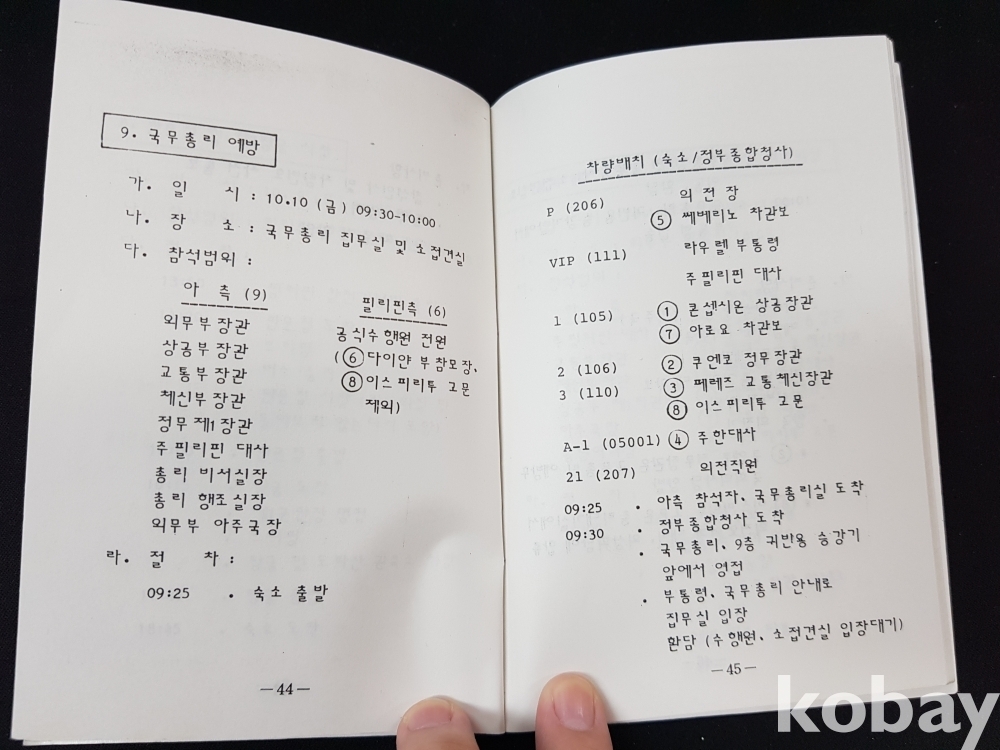 9. 국무총리 예방
가. 일 시 : 10.10 (금) 09:30-10:00
나. 장 소 : 국무총리 집무실 및 소접견실
다. 참석범위 :
아 측 (9)
외무부장관
상공부장관
교통부장관
체신부장관
정무제1장관
주필리핀 대사
총리 비서실장
총리 행조실장
외무부 아주국장
필리핀측 (6)
공식수행원 전원
(⑥다이얀 부참모장,
⑧이스피리투 고문
제외)
라. 절 차 :
09:25 . 숙소 출발
-44-
차량배치 (숙소/정부종합청사)
P (206) 의전장
⑤ 쎄베리노 차관보
VIP (111) 라우렐부통령
주필리핀 대사
1 (105) ① 콘셉시온 상공장관
⑦ 아로요 차관보
2 (106) ② 쿠엔코 정무장관
3 (110) ③ 페레즈 교통체신장관
⑧ 이스피리투 고문
A-1 (05001) ④ 주한대사
21 (207) 의전직원
09:25 . 아측 참석자, 국무총리실 도착
09:30 . 정부종합청사 도착
. 국무총리, 9층 귀빈용 승강기
앞에서 영접
. 부통령, 국무총리 안내로
집무실 입장
환담 (수행원, 소접견실 입장대기)
-45-
kobay